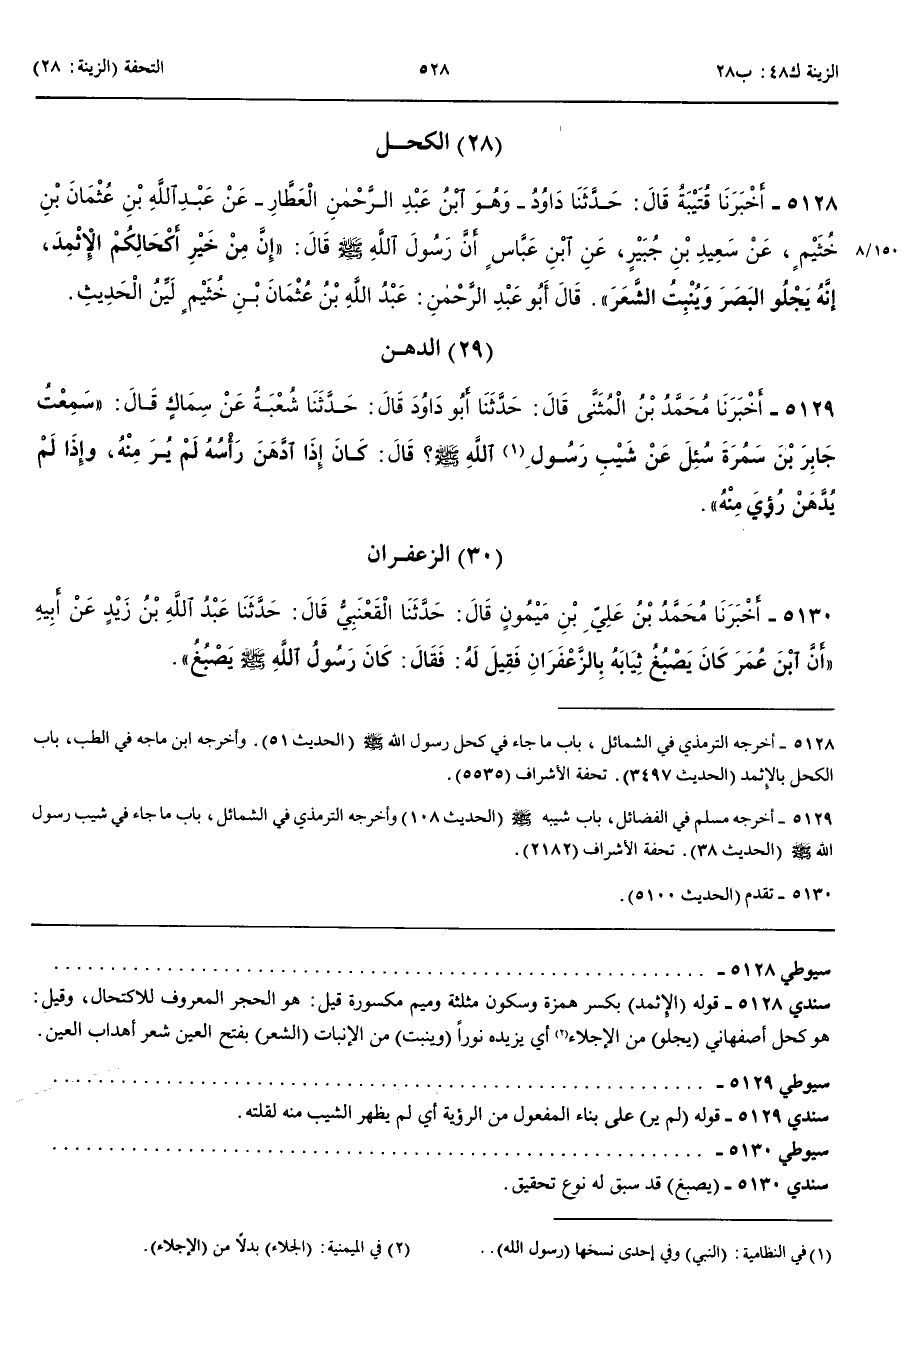 الزينة ك٤٨: ب٢٨ ٥٢٨ التحفة (الزينة: ٢٨)
(٢٨) الكحل
٥١٢٨ ـ أَخْبَرَنَا قُتَيْبَةُ قَالَ: حَدَّثَنَا دَاوُدُ ـ وَهُوَ ٱبْنُ عَبْدِ الرَّحْمٰنِ الْعَطَّارِ ـ عَنْ عَبْدِ ٱللَّهِ بْنِ عُثْمَانَ بْنِ
٨/١٥٠ خُثَيْمٍ، عَنْ سَعِيدِ بْنِ جُبَيْرٍ، عَنِ ٱبْنِ عَبَّاسٍ أَنَّ رَسُولَ ٱللَّهِ ﷺ قَالَ: «إِنَّ مِنْ خَيْرِ أَكْحَالِكُمْ الْإِثْمِدَ،
إِنَّهُ يَجْلُو البَصَرَ وَيُنْبِتُ الشَّعَرَ». قَالَ أَبُو عَبْدِ الرَّحْمٰنِ: عَبْدُ اللَّهِ بْنُ عُثْمَانَ بْنِ خُثَيْمٍ لَيِّنُ الْحَدِيثِ.
(٢٩) الدهن
٥١٢٩ ـ أَخْبَرَنَا مُحَمَّدُ بْنُ الْمُثَنَّى قَالَ: حَدَّثَنَا أَبُو دَاوُدَ قَالَ: حَدَّثَنَا شُعْبَةُ عَنْ سِمَاكٍ قَالَ: «سَمِعْتُ
جَابِرَ بْنَ سَمُرَةَ سُئِلَ عَنْ شَيْبِ رَسُولِ(١) ٱللَّهِ ﷺ؟ قَالَ: كَانَ إِذَا ٱدَّهَنَ رَأْسُهُ لَمْ يُرَ مِنْهُ، وإِذَا لَمْ
يُدَّهَنْ رُؤِيَ مِنْهُ».
(٣٠) الزعفران
٥١٣٠ ـ أَخْبَرَنَا مُحَمَّدُ بْنُ عَلِيِّ بْنِ مَيْمُونٍ قَالَ: حَدَّثَنَا الْقَعْنَبِيُّ قَالَ: حَدَّثَنَا عَبْدُ ٱللَّهِ بْنُ زَيْدٍ عَنْ أَبِيهِ
«أَنَّ ٱبْنَ عُمَرَ كَانَ يَصْبُغُ ثِيَابَهُ بِالزَّعْفَرَانِ فَقِيلَ لَهُ: فَقَالَ: كَانَ رَسُولُ ٱللَّهِ ﷺ يَصْبُغُ».
٥١٢٨ ـ أخرجه الترمذي في الشمائل، باب ما جاء في كحل رسول الله ﷺ (الحديث ٥١). وأخرجه ابن ماجه في الطب، باب
الكحل بالإثمد (الحديث ٣٤٩٧). تحفة الأشراف (٥٥٣٥).
٥١٢٩ ـ أخرجه مسلم في الفضائل، باب شيبه ﷺ (الحديث ١٠٨) وأخرجه الترمذي في الشمائل، باب ما جاء في شيب رسول
الله ﷺ (الحديث ٣٨). تحفة الأشراف (٢١٨٢).
٥١٣٠ ـ تقدم (الحديث ٥١٠٠).
سيوطي ٥١٢٨ ـ ........................................................
سندي ٥١٢٨ ـ قوله (الإثمد) بكسر همزة وسكون مثلثة وميم مكسورة قيل: هو الحجر المعروف للاكتحال، وقيل:
هو كحل أصفهاني (يجلو) من الإجلاء(٢) أي يزيده نوراً (وينبت) من الإنبات (الشعر) بفتح العين شعر أهداب العين.
سيوطي ٥١٢٩ ـ ........................................................
سندي ٥١٢٩ ـ قوله (لم ير) على بناء المفعول من الرؤية أي لم يظهر الشيب منه لقلته.
سيوطي ٥١٣٠ ـ ........................................................
سندي ٥١٣٠ ـ (يصبغ) قد سبق له نوع تحقيق.
(١) في النظامية: (النبي) وفي إحدى نسخها (رسول الله).. (٢) في الميمنية: (الجلاء) بدلًا من (الإجلاء).